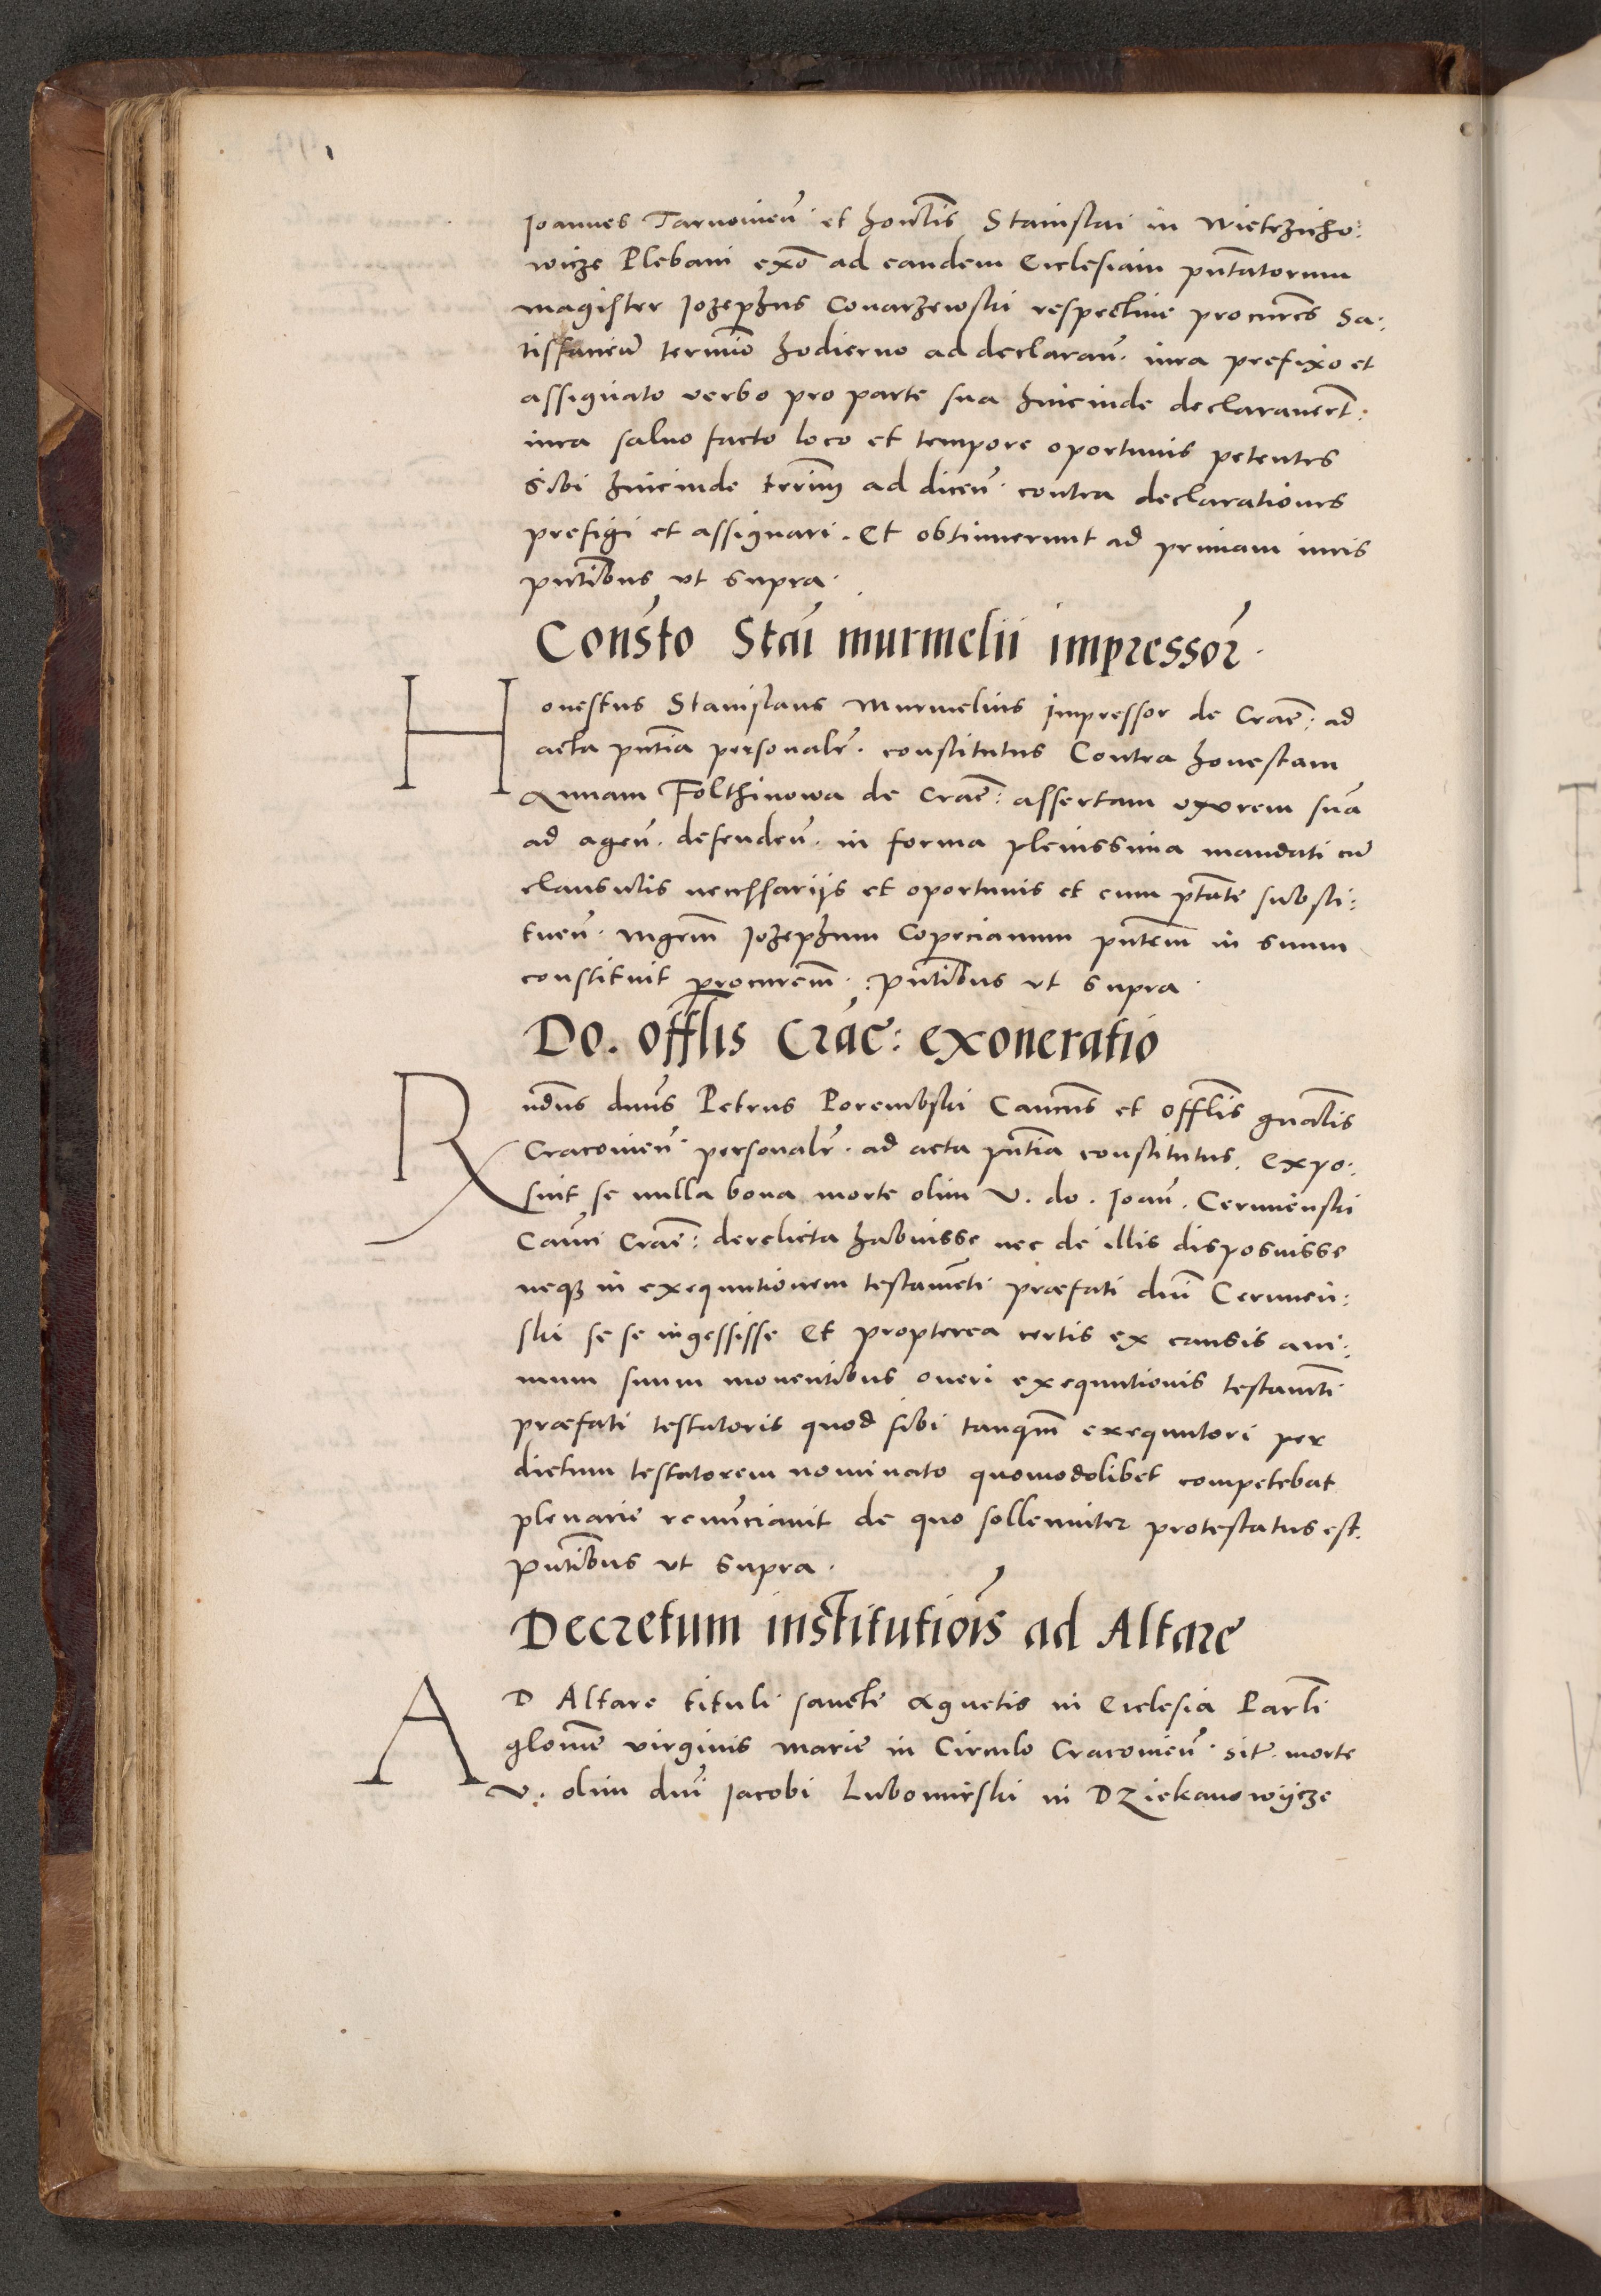 Joannes Tarnovien̄. et hon̄lis Stanislai in Wietrzicho:
wicze Plebani ex&#x1D52; ad eandem Ecclesiam pn̄tatorum
magister Jozephus Conarzewski respective procur̄es Sa:
tisfacieñ termīo hodierno ad declaran̄. iura prefixo et
assignato verbo pro parte sua hincinde declaraver̄t:
iura salvo facto loco et tempore oportunis petentes
sibi hincinde ter̄im̄ ad dicen̄. contra declarationes
prefigi et assignari. Et obtinuerunt ad primam iuris
pn̄tibus ut supra.
Cons̄to Stāi murmelii impressor̄.
Honestus Stanislaus Murmelius impressor de Crac̄: ad
acta pn̄tia personalr̄. constitutus Contra honestam
Annam Folthinowa de Crac̄: assertam uxorem suā
ad agen̄. defenden̄. in forma plenissima mandati cū
clausulis necessariis et oportunis et cum ptāte substi:
tuen̄. Mgr̄m Jozephum Coprcianum pn̄tem in suum
constituit procurem̄. pn̄tibus ut supra.
Do. offl̄is Crac̄: exoneratio
Rndūs dnūs Petrus Porembski Canc̄us et offl̄is gnālis
Cracovien̄. personalr̄. ad acta pn̄tia constitutus. Expo:
suit se nulla bona morte olim V. do. Joan̄. Cerminski
Can̄ci Crac̄: derelicta habuisse nec de illis disposuisse
neq̨ in exequutionem testamēti. præfati dnī Cermen:
ski se se ingessisse Et propterea certis ex causis ani:
mum suum moventibus oneri exequutionis testam̄ti
præfati testatoris quod sibi tanqm̄ exequutori per
dictum testatorem nominato quomodolibet competebat
plenarie renūnciavit de quo sollemniter protestatus est.
pn̄tibus ut supra.
Decretum institutioīs ad Altare
AD Altare tituli sancte Agnetis in Ecclesia Parl̄i
glorm̄e virginis Marie in Circulo Cracovien̄. sit̄. morte
V. olim dnī Jacobi Lubomirski in Dziekanowijcze